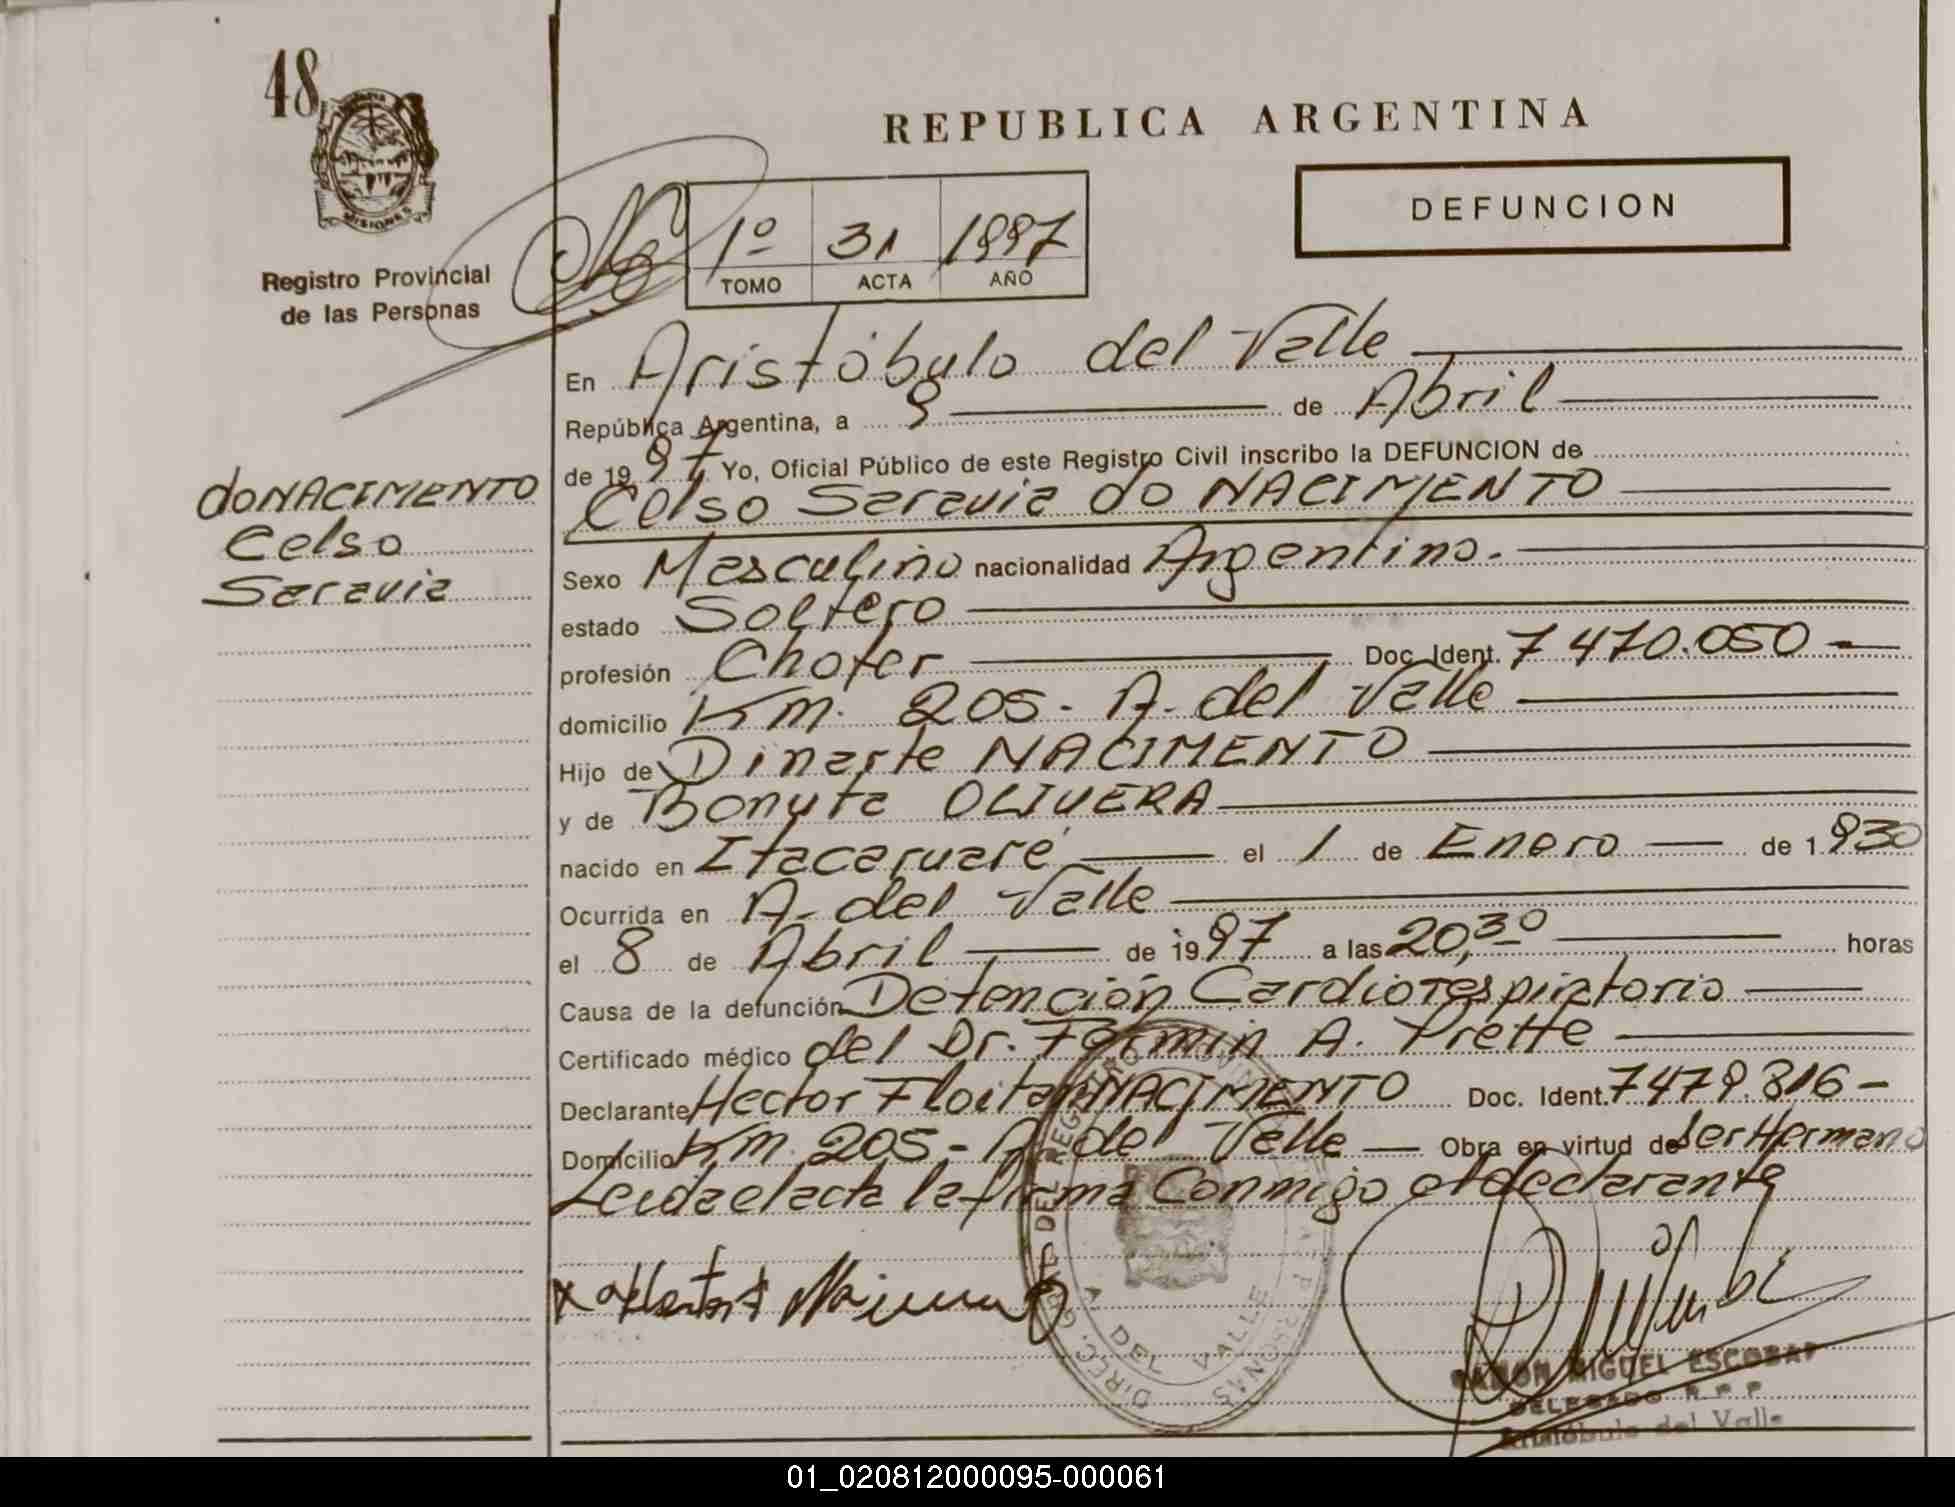 48
MISIONES
Registro Provincial
de las Personas
REPUBLICA ARGENTINA
DEFUNCION
1º 31 1997
TOMO ACTA AÑO
En Aristóbulo del Valle
República Argentina, a 9 de Abril
de 1997 Yo, Oficial Público de este Registro Civil inscribo la DEFUNCION de
Celso Saravia do NACIMENTO
doNACIMENTO
Celso
Saravia
Sexo Masculino nacionalidad Argentino.
estado Soltero
profesión Chofer Doc. Ident. 7470.050-
domicilio Km. 205- A. del Valle
Hijo de Dinarte NACIMENTO
y de Bonyta OLIVERA
nacido en Itacaruaré el 1 de Enero de 1.930
Ocurrida en A. del Valle
el 8 de Abril de 1997 a las 20,30 horas
Causa de la defunción Detención Cardiorespiratorio
Certificado médico del Dr. Fermin A. Prette
Declarante Hector NACIMENTO Doc. Ident. 7479.816-
Domicilio Km. 205- A. del Valle Obra en virtud de Ser Hermano
Leida el acta la firma Conmigo el declarante
A. DEL VALLE
RAMON MIGUEL ESCOBAR
DELEGADO R.P.P.
Aristóbulo del Valle
01_020812000095-000061